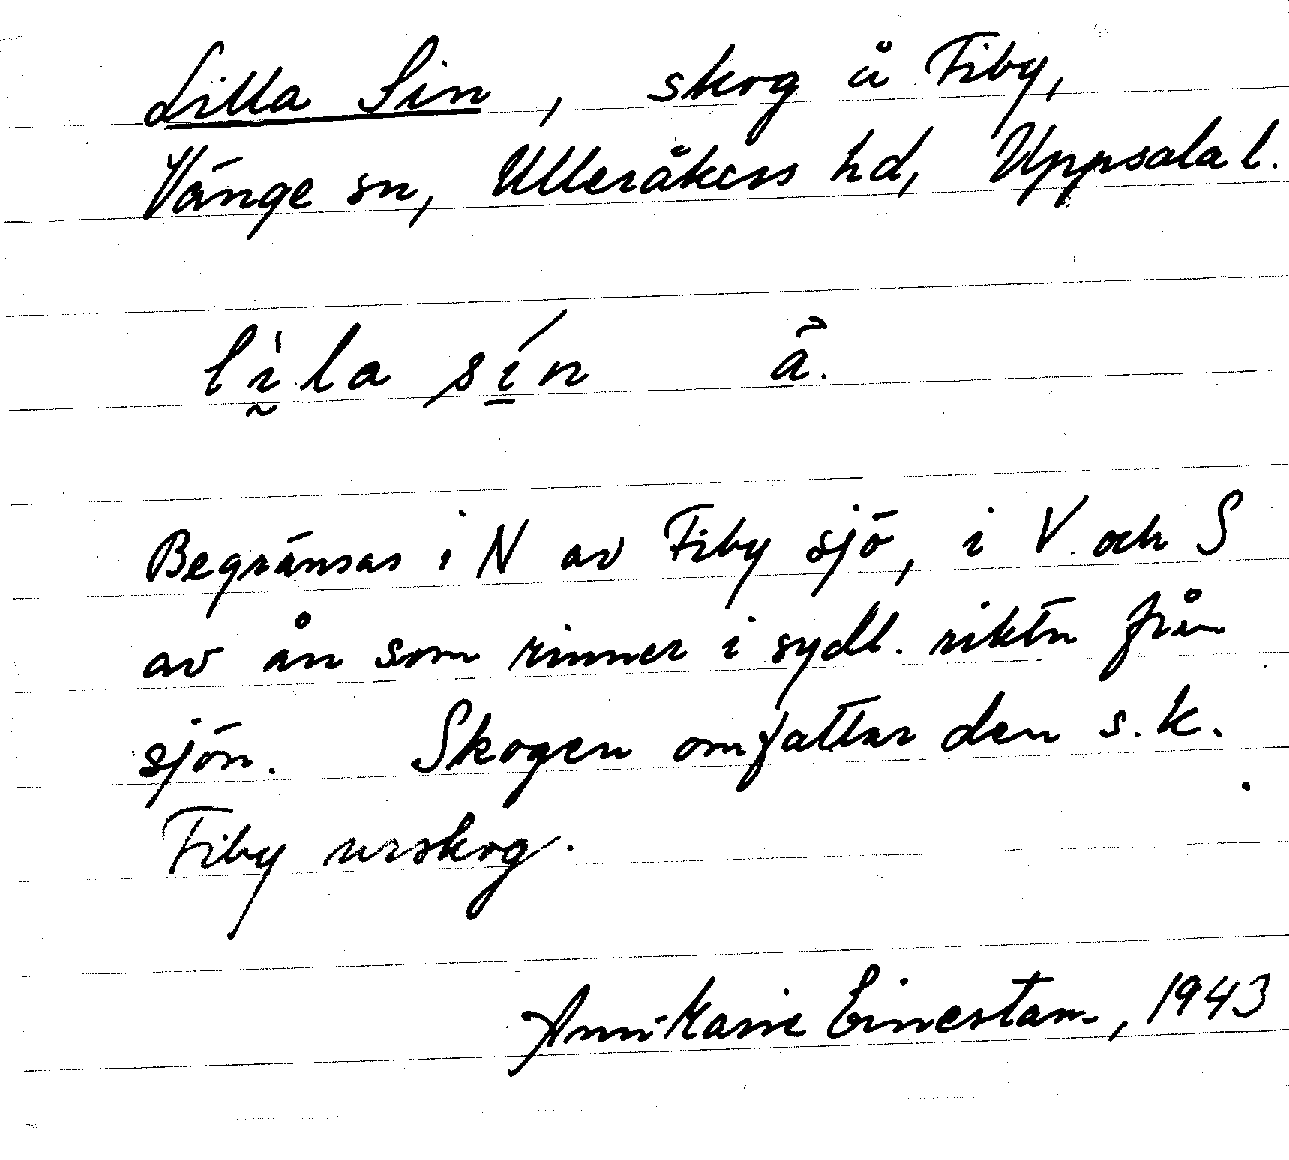 Lilla Sin, skog å Fiby,
Vänge sn, Ulleråkers hd, Uppsala l.
lìla sín å̄.
Begränsas i N av Fiby sjö, i V och S
av ån som rinner i sydl. riktn från
sjön. Skogen omfattar den s.k.
Fiby urskog.
Ann-Marie Einestam, 1943